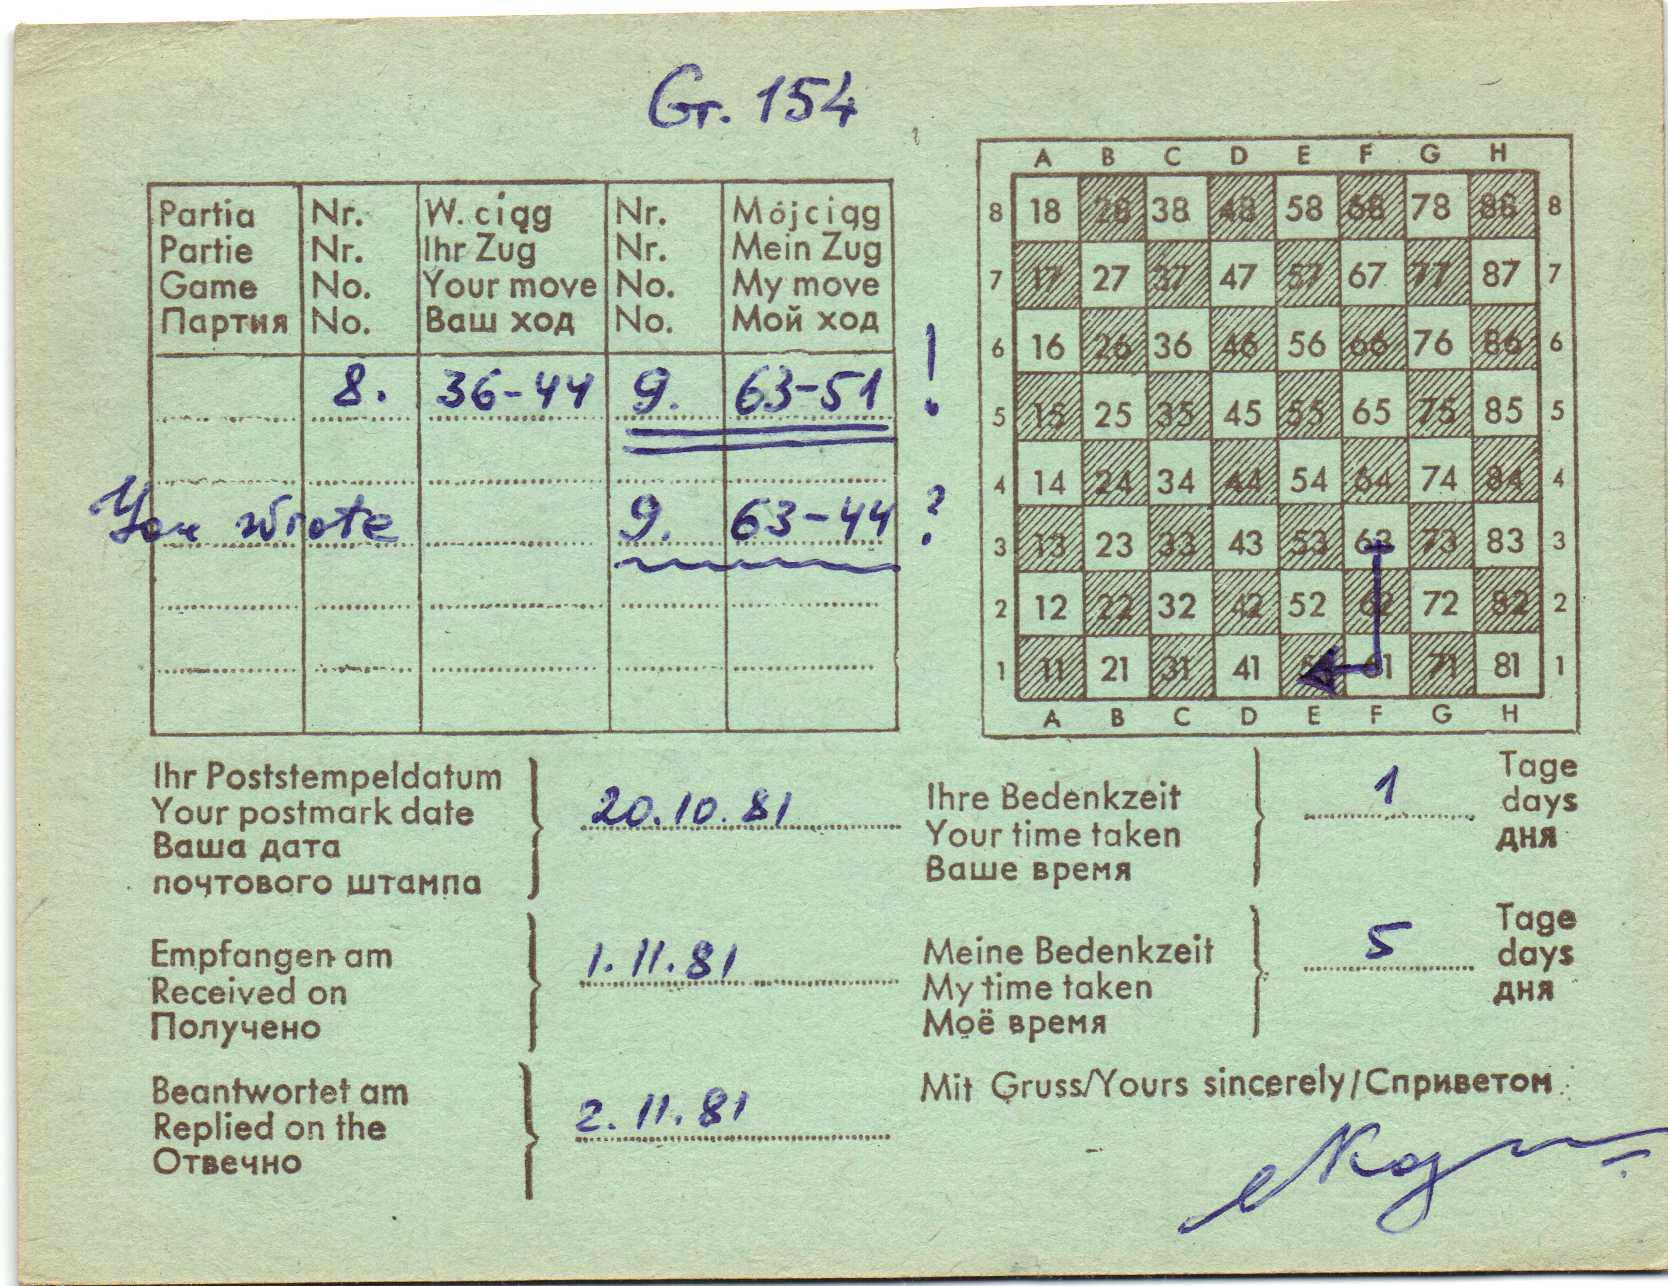 Gr. 154
Partia Nr. W. ciąg Nr. Mój ciąg
Partie Nr. Ihr Zug Nr. Mein Zug
Game No. Your move No. My move
Партия No. Ваш ход No. Мой ход
8. 36-44 9. 63-51 !
You wrote 9. 63-44 ?
A B C D E F G H
8 18 28 38 48 58 68 78 88 8
7 17 27 37 47 57 67 77 87 7
6 16 26 36 46 56 66 76 86 6
5 15 25 35 45 55 65 75 85 5
4 14 24 34 44 54 64 74 84 4
3 13 23 33 43 53 63 73 83 3
2 12 22 32 42 52 62 72 82 2
1 11 21 31 41 51 61 71 81 1
A B C D E F G H
Ihr Poststempeldatum
Your postmark date
Ваша дата
почтового штампа
20.10.81
Ihre Bedenkzeit
Your time taken
Ваше время
1
Tage
days
дня
Empfangen am
Received on
Получено
1.11.81
Meine Bedenkzeit
My time taken
Моё время
5
Tage
days
дня
Beantwortet am
Replied on the
Отвечно
2.11.81
Mit Gruss/Yours sincerely/Сприветом